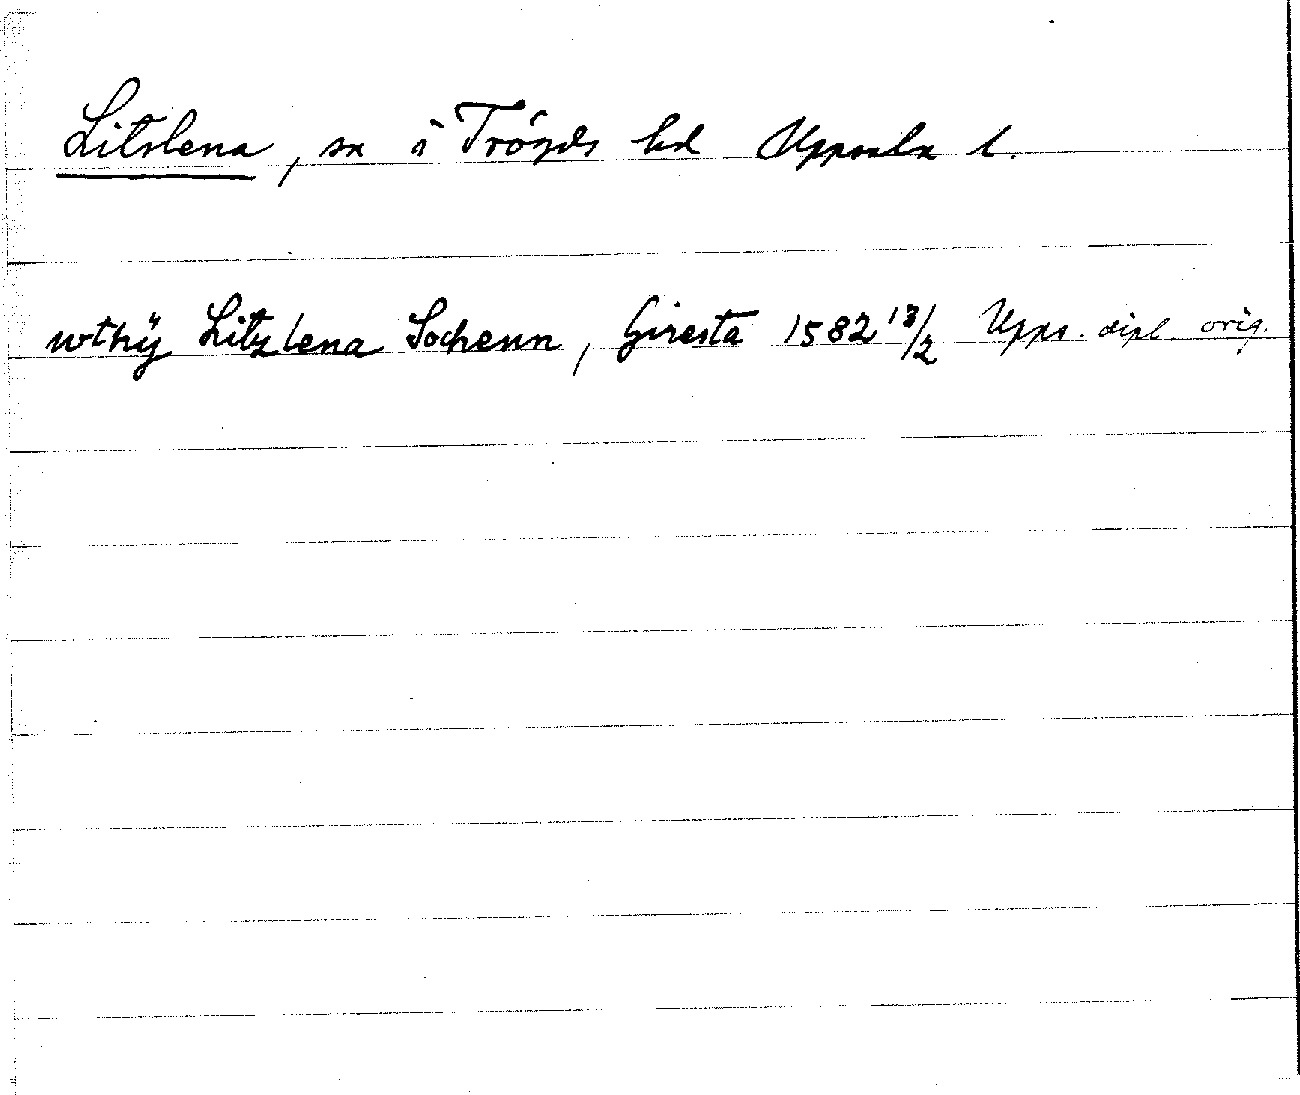 Litslena, sn i Trögds hd Uppsala l.
wthÿ Litzlena Sochenn, Giresta 1582 13/2 Upps. dipl. orig.